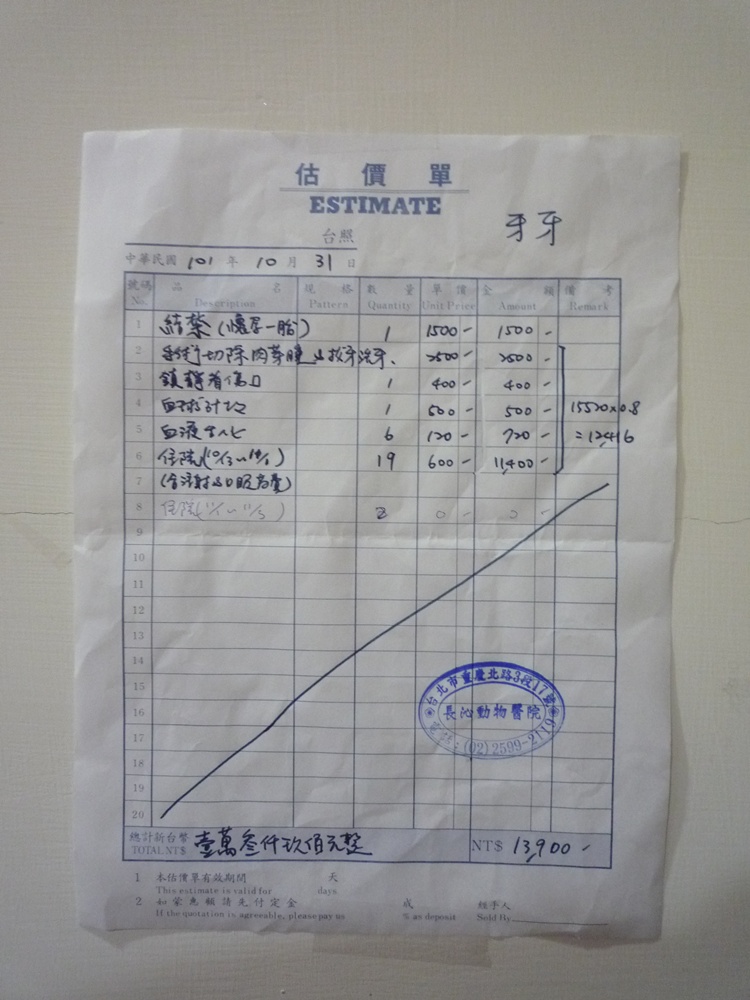 估價單
ESTIMATE
牙牙
台照
中華民國 101 年 10 月 31 日
號碼 品名 規格 數量 單價 金額 備考
No. Description Pattern Quantity Unit Price Amount Remark
1 結紮(懷孕一胎) 1 1500- 1500-
2 手術切除肉芽腫及拔牙洗牙、 2500- 2500-
3 鎮靜看傷口 1 400- 400-
4 血球計攻 1 500- 500- 15520x0.8
5 血液生化 6 120- 720- =12416
6 住院( 19 600- 11,400-
7 (含注射及口服
8 住院( 2 0- 0-
9
10
11
12
13
14
15
16
17
18
19
20
台北市重慶北路3段17號
長沁動物醫院
電話:(02)2599-2119
總計新台幣 壹萬叁仟玖佰元整
TOTAL NT$ NT$ 13,900-
1 本估價單有效期間 天
This estimate is valid for days
2 如蒙惠顧請先付定金 成 經手人
If the quotation is agreeable, please pay us % as deposit Sold By